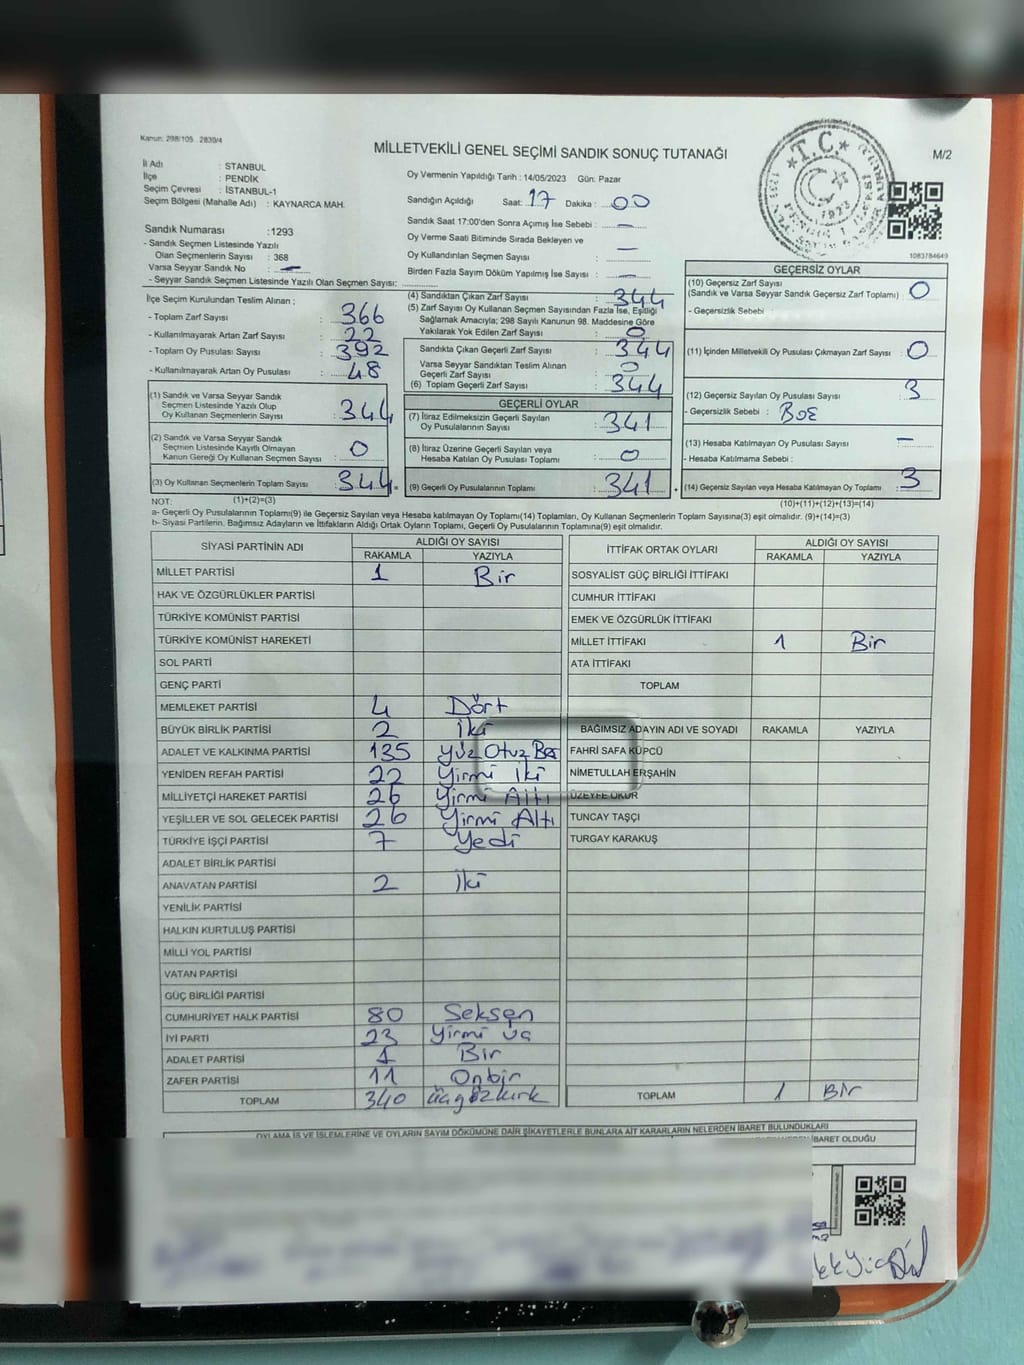 Kanun: 298/105 2839/4
MİLLETVEKİLİ GENEL SEÇİMİ SANDIK SONUÇ TUTANAĞI
M/2
T.C.
1923
İl Adı : İSTANBUL
İlçe : PENDİK
Seçim Çevresi : İSTANBUL-1
Seçim Bölgesi (Mahalle Adı) : KAYNARCA MAH.
Sandık Numarası :1293
- Sandık Seçmen Listesinde Yazılı
Olan Seçmenlerin Sayısı : 368
Varsa Seyyar Sandık No : —
- Seyyar Sandık Seçmen Listesinde Yazılı Olan Seçmen Sayısı:
Oy Vermenin Yapıldığı Tarih : 14/05/2023 Gün: Pazar
Sandığın Açıldığı Saat: 17 Dakika : 00
Sandık Saat 17:00'den Sonra Açımış İse Sebebi : —
Oy Verme Saati Bitiminde Sırada Bekleyen ve
Oy Kullandırılan Seçmen Sayısı : —
Birden Fazla Sayım Döküm Yapılmış İse Sayısı : —
1083784649
İlçe Seçim Kurulundan Teslim Alınan ;
- Toplam Zarf Sayısı : 366
- Kullanılmayarak Artan Zarf Sayısı : 22
- Toplam Oy Pusulası Sayısı : 392
- Kullanılmayarak Artan Oy Pusulası : 48
(1) Sandık ve Varsa Seyyar Sandık
Seçmen Listesinde Yazılı Olup
Oy Kullanan Seçmenlerin Sayısı : 344
(2) Sandık ve Varsa Seyyar Sandık
Seçmen Listesinde Kayıtlı Olmayan
Kanun Gereği Oy Kullanan Seçmen Sayısı : 0
(3) Oy Kullanan Seçmenlerin Toplam Sayısı : 344 =
(1)+(2)=(3)
(4) Sandıktan Çıkan Zarf Sayısı : 344
(5) Zarf Sayısı Oy Kullanan Seçmen Sayısından Fazla İse, Eşitliği
Sağlamak Amacıyla; 298 Sayılı Kanunun 98. Maddesine Göre
Yakılarak Yok Edilen Zarf Sayısı : 0
Sandıkta Çıkan Geçerli Zarf Sayısı : 344
Varsa Seyyar Sandıktan Teslim Alınan
Geçerli Zarf Sayısı : 0
(6) Toplam Geçerli Zarf Sayısı : 344
GEÇERLİ OYLAR
(7) İtiraz Edilmeksizin Geçerli Sayılan
Oy Pusulalarının Sayısı : 341
(8) İtiraz Üzerine Geçerli Sayılan veya
Hesaba Katılan Oy Pusulası Toplamı : 0
(9) Geçerli Oy Pusulalarının Toplamı : 341 +
GEÇERSİZ OYLAR
(10) Geçersiz Zarf Sayısı
(Sandık ve Varsa Seyyar Sandık Geçersiz Zarf Toplamı) : 0
- Geçersizlik Sebebi :
(11) İçinden Milletvekili Oy Pusulası Çıkmayan Zarf Sayısı : 0
(12) Geçersiz Oy Pusulası Sayısı : 3
- Geçersizlik Sebebi : BOŞ
(13) Hesaba Katılmayan Oy Pusulası Sayısı : —
- Hesaba Katılmama Sebebi :
(14) Geçersiz Sayılan veya Hesaba Katılmayan Oy Toplamı : 3
(10)+(11)+(12)+(13)=(14)
NOT:
a- Geçerli Oy Pusulalarının Toplamı(9) ile Geçersiz Sayılan veya Hesaba katılmayan Oy Toplamı(14) Toplamları, Oy Kullanan Seçmenlerin Toplam Sayısına(3) eşit olmalıdır. (9)+(14)=(3)
b- Siyasi Partilerin, Bağımsız Adayların ve İttifakların Aldığı Ortak Oyların Toplamı, Geçerli Oy Pusulalarının Toplamına(9) eşit olmalıdır.
SİYASİ PARTİNİN ADI ALDIĞI OY SAYISI
RAKAMLA YAZIYLA
MİLLET PARTİSİ 1 Bir
HAK VE ÖZGÜRLÜKLER PARTİSİ
TÜRKİYE KOMÜNİST PARTİSİ
TÜRKİYE KOMÜNİST HAREKETİ
SOL PARTİ
GENÇ PARTİ
MEMLEKET PARTİSİ 4 Dört
BÜYÜK BİRLİK PARTİSİ 2 İki
ADALET VE KALKINMA PARTİSİ 135 Yüz Otuz Beş
YENİDEN REFAH PARTİSİ 22 Yirmi İki
MİLLİYETÇİ HAREKET PARTİSİ 26 Yirmi Altı
YEŞİLLER VE SOL GELECEK PARTİSİ 26 Yirmi Altı
TÜRKİYE İŞÇİ PARTİSİ 7 Yedi
ADALET BİRLİK PARTİSİ
ANAVATAN PARTİSİ 2 İki
YENİLİK PARTİSİ
HALKIN KURTULUŞ PARTİSİ
MİLLİ YOL PARTİSİ
VATAN PARTİSİ
GÜÇ BİRLİĞİ PARTİSİ
CUMHURİYET HALK PARTİSİ 80 Seksen
İYİ PARTİ 23 Yirmi üç
ADALET PARTİSİ 1 Bir
ZAFER PARTİSİ 11 Onbir
TOPLAM 340 üçyözkırk
İTTİFAK ORTAK OYLARI ALDIĞI OY SAYISI
RAKAMLA YAZIYLA
SOSYALİST GÜÇ BİRLİĞİ İTTİFAKI
CUMHUR İTTİFAKI
EMEK VE ÖZGÜRLÜK İTTİFAKI
MİLLET İTTİFAKI 1 Bir
ATA İTTİFAKI
TOPLAM
BAĞIMSIZ ADAYIN ADI VE SOYADI RAKAMLA YAZIYLA
FAHRİ SAFA KÜPCÜ
NİMETULLAH ERŞAHİN
ÜZEYFE OKUR
TUNCAY TAŞÇI
TURGAY KARAKUŞ
TOPLAM 1 Bir
OYLAMA İŞ VE İŞLEMLERİNE VE OYLARIN SAYIM DÖKÜMÜNE DAİR ŞİKAYETLERLE BUNLARA AİT KARARLARIN NELERDEN İBARET BULUNDUKLARI
İBARET OLDUĞU